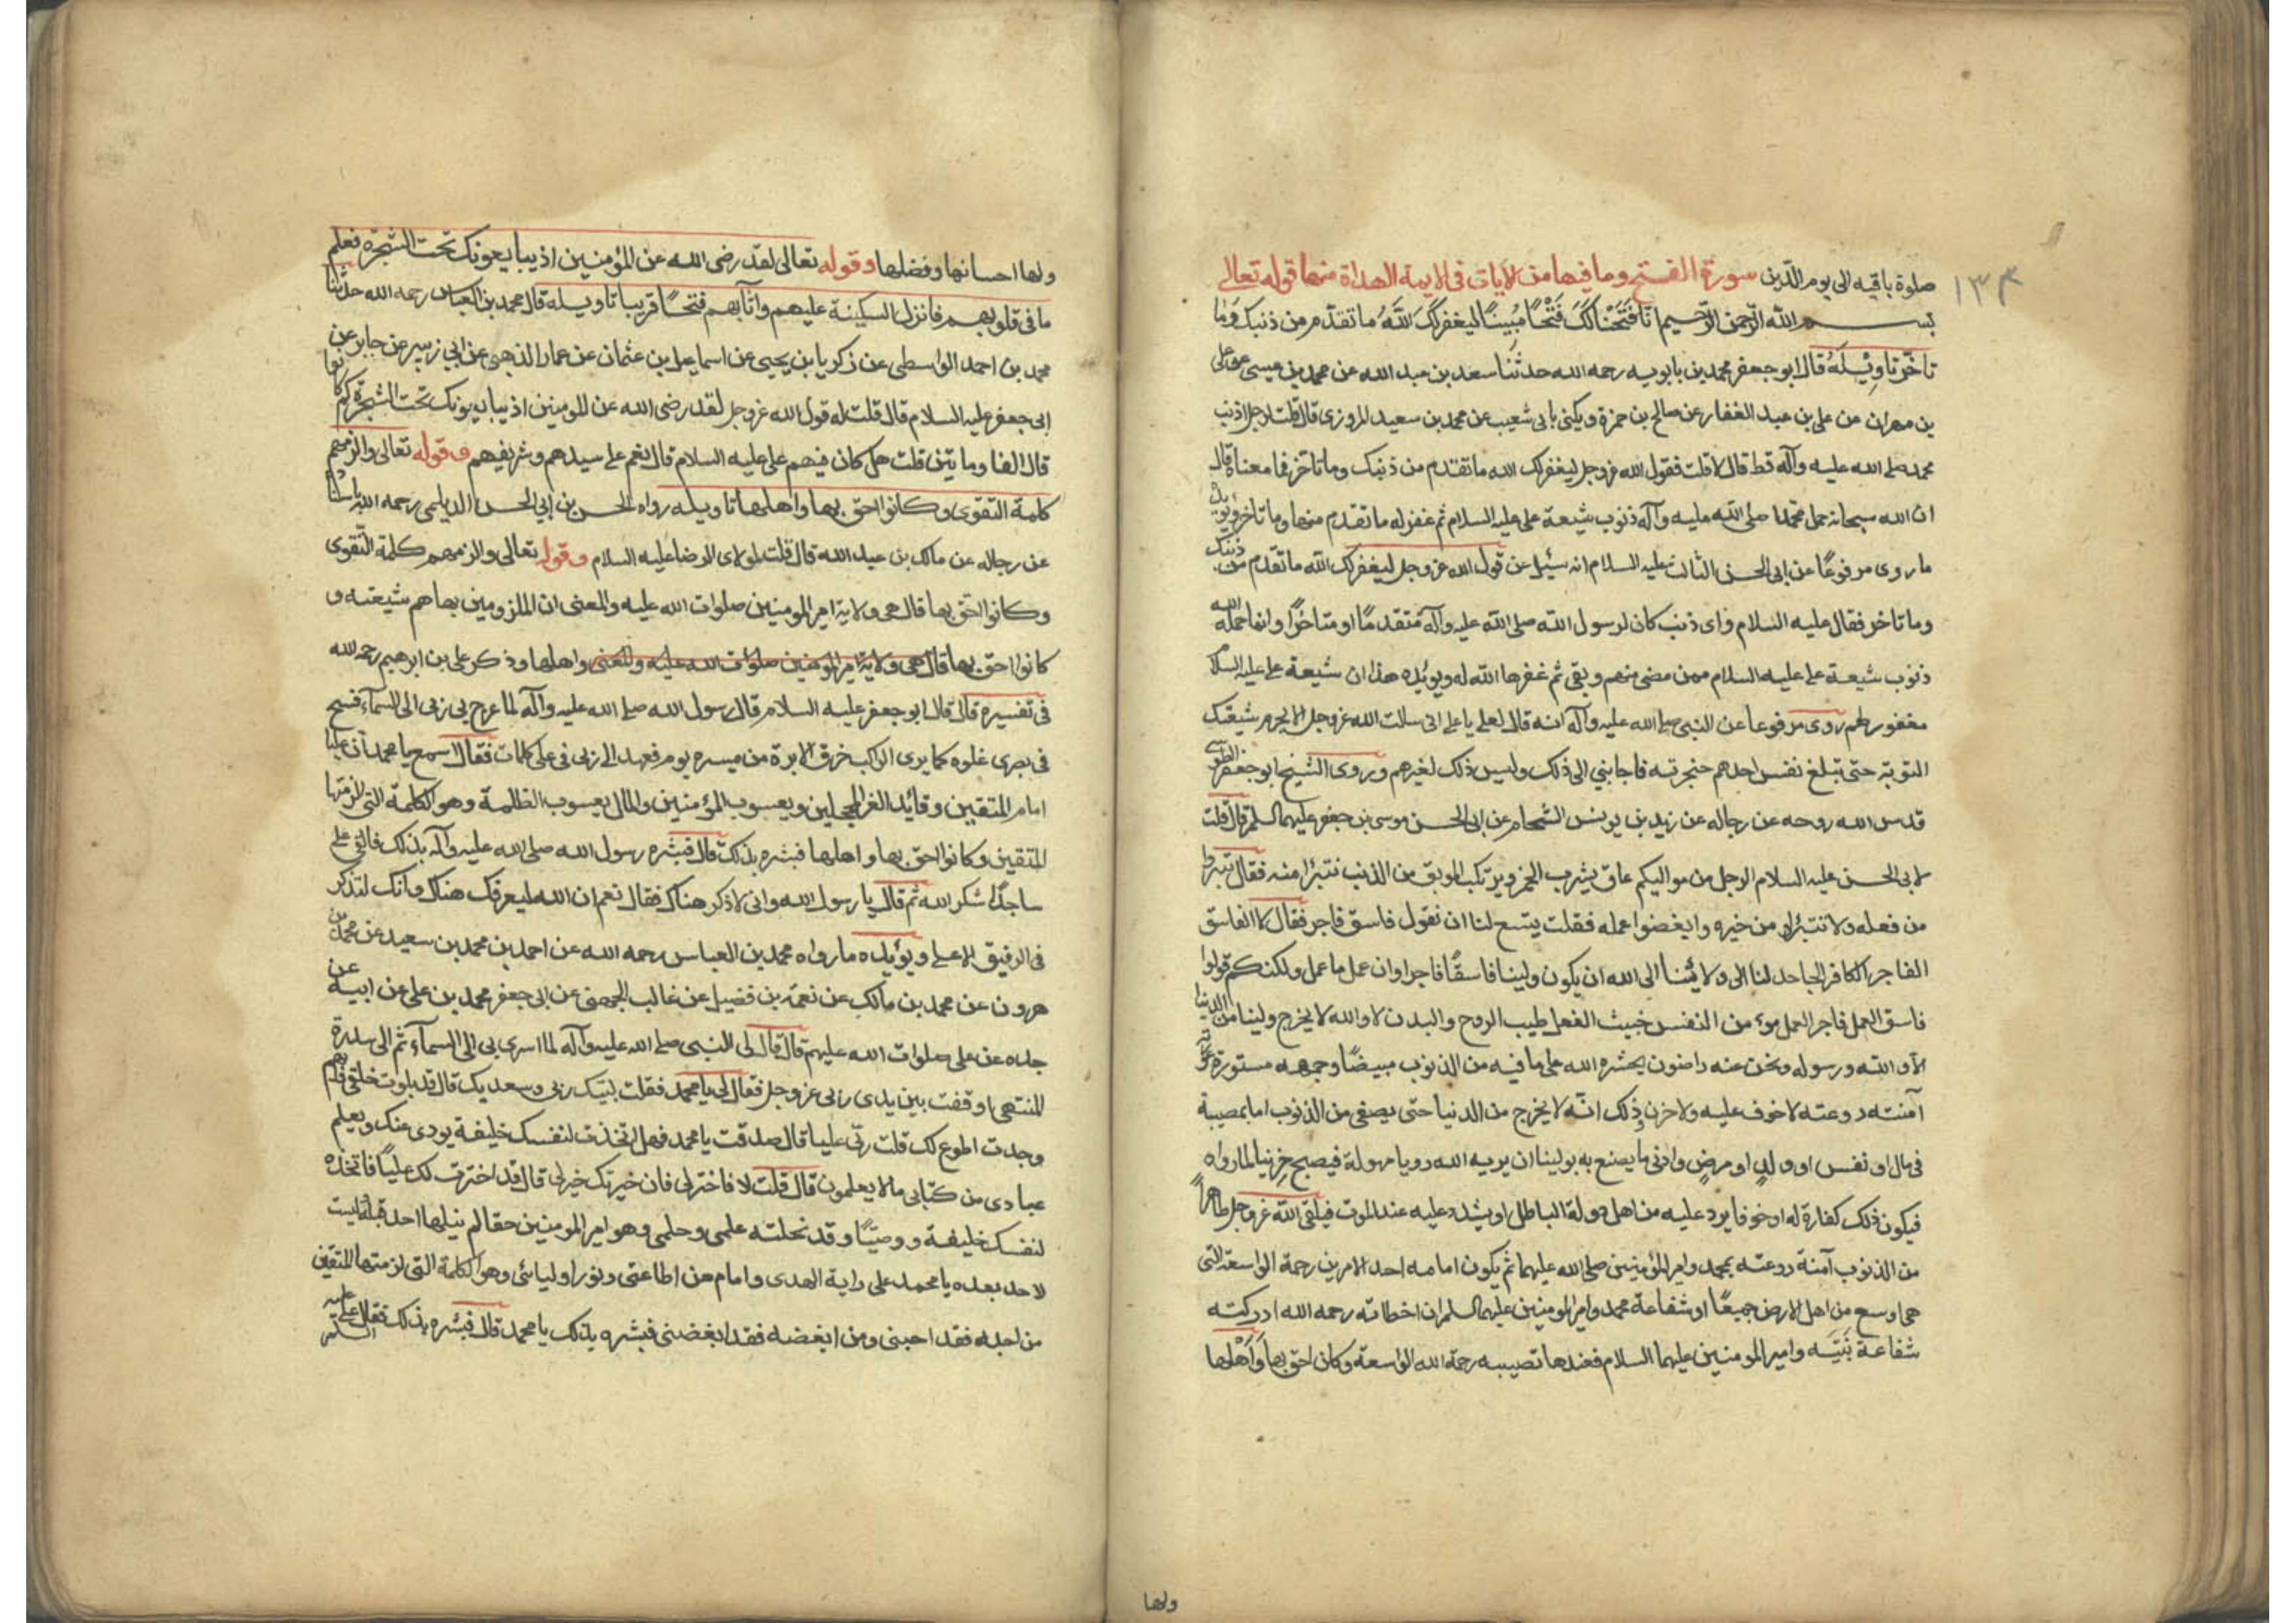 ١٣٤
صلوة باقيه الى يوم الدّين سورة الفتح وما فيها من الايات فى الايمة الهداة منها قوله تعالى
بسم الله الرّحمن الرّحيم انّا فَتَحْنا لَكَ فَتْحًا مُبِينًا ليغفر لَكَ اللهُ ما تقدّم من ذنبك وَما
تاخّر تاوِيْلَهُ قال ابو جعفر محمد بن بابويه رحمه الله حدثنا سعد بن عبد الله عن محمد بن عيسى عن على
بن مهران عن على بن عبد الغفار عن صالح بن حمزة ويكنى بابى شعيب عن محمد بن سعيد المروزى قال قلت لرجل اذنب
محمد صلى الله عليه وآله قط قال لا قلت فقول الله عز وجل ليغفر لك الله ما تقدم من ذنبك وما تاخر فما معناة قال
ان الله سبحانه حمل محمّدا صلى الله عليه وآله ذنوب شيعة على عليه السلام ثم غفر له ما تقدم منها وما تاخر ويؤيده
ما روى مرفوعًا عن ابى الحسن الثالث عليه السلام انه سئيل عن قول الله عز وجل ليغفر لك الله ما تقدم من ذنبك
وما تاخر فقال عليه السلام واى ذنب كان لرسول الله صلى الله عليه وآله مُتقدمًا او متاخرًا وانما حمله الله
ذنوب شيعة على عليه السلام ممن مضى منهم وبقى ثم غفرها الله له ويويّده هذا ان شيعة على عليه السلام
مغفور لهم روى مرفوعا عن النبى صلى الله عليه وآله انه قال لعلى يا على انى سالت الله عز وجل الا يحرم شيعتك
التوبة حتى تبلغ نفس احدهم حنجرته فاجابنى الى ذلك وليس ذلك لغيرهم وروى الشيخ ابو جعفر الطوسى
قدس الله روحه عن رجاله عن زيد بن يونس الشحام عن ابى الحسن موسى بن جعفر عليهما السلم قال قلت
لابى الحسن عليه السلام الرجل من مواليكم عاق يشرب الخمر ويرتكب الموبق من الذنب نتبرّا منه فقال تبرّوا
من فعله ولا تتبرّاو من خيره وابغضوا عمله فقلت يتسع لنا ان نقول فاسق فاجر فقال لا الفاسق
الفاجر الكافر الجاحد لنا الى ولايتنا ابى الله ان يكون ولينا فاسقًا فاجرا وان عمل ما عمل ولكنكم قولوا
فاسق العمل فاجر العمل موء من النفس خبيث الفعل طيب الروح والبدن لا والله لا يخرج ولينا من الدنيا
الا والله ورسوله ونحن عنه راضون يحشره الله على ما فيه من الذنوب مبيضًا وجهه مستورة عورته
آمنته روعته لا خوف عليه ولا حزن وذلك انّه لا يخرج من الدنيا حتى يصفى من الذنوب اما بمصيبة
فى مال او نفس او ولد او مرض وادنى ما يصنع به بولينا ان يريه الله رويا مهولة فيصبح حزينا لما رواه
فيكون ذلك كفارة له او خوفا يرد عليه من اهل دولة الباطل او يشدد عليه عند الموت فيلقى الله عز وجل طاهرًا
من الذنوب آمنة روعته بمحمد وامير المؤمنين صلى الله عليهما ثم يكون امامه احد الامرين رحمة الواسعة التى
هى اوسع من اهل الارض جميعًا او شفاعة محمد وامير المومنين عليهما السلم ان اخطاته رحمه الله ادركته
شفاعة نَبيّه وامير المومنين عليهما السلام فعندها تصيبه رحمة الله الواسعة وكان احق بها وَاَهْلها
ولها
ولها احسانها وفضلها وقوله تعالى لقد رضى الله عن المؤمنين اذ يبايعونك تحت الشجرة فعلم
ما فى قلوبهم فانزل السكينة عليهم واثابهم فتحًا قريبا تاويله قال محمد بن العباس رحمه الله حدثنا
محمد بن احمد الواسطى عن زكريا بن يحيى عن اسماعيل بن عثمان عن عمار الذهبى عن ابى زبير عن جابر عن
ابى جعفر عليه السلام قال قلت له قول الله عز وجل لقد رضى الله عن المومنين اذ يبايعونك تحت الشجرة كم كانوا
قال الفا وماتين قلت هل كان فيهم على عليه السلام قال نعم على سيدهم وشريفهم وقوله تعالى والزمهم
كلمة التقوى وكانوا احق بها واهلها تاويله رواه الحسن بن ابى الحسن الديلمى رحمه الله باسناده
عن رجاله عن مالك بن عبد الله قال قلت لمولاى الرضا عليه السلام وقوله تعالى والزمهم كلمة التقوى
وكانوا احق بها قال هى ولاية امير المومنين صلوات الله عليه والمعنى ان الملزومين بها هم شيعته و
كانوا احق بها قال هى ولاية امير المومنين صلوات الله عليه والمعنى واهلها وذكر على بن ابرهيم رحمه الله
فى تفسيره قال قال ابو جعفر عليه السلام قال رسول الله صلى الله عليه وآله لما عرج بى ربى الى السمآء فسح
فى بصرى غلوه كما يرى الراكب خرق الابرة من ميسره يوم فعهد الى ربى فى على كلمات فقال اسمع يا محمد ان عليا
امام المتقين وقائد الغر المحجلين ويعسوب المؤمنين والمال يعسوب الظلمة وهو الكلمة التى الزمتها
المتقين وكانوا احق بها واهلها فبشره بذلك قال فبشره رسول الله صلى الله عليه وآله بذلك فالقى على
ساجدًا شكر الله ثم قال يا رسول الله وانى لاذكر هناك فقال نعم ان الله ليعرفك هناك وانك لتذكر
فى الرفيق الاعلى ويؤيده ما رواه محمد بن العباس رحمه الله عن احمد بن محمد بن سعيد عن محمد بن
هرون عن محمد بن مالك عن نعمة بن فضيل عن غالب الجهنى عن ابى جعفر محمد بن على عن ابيه عن
جده عن على صلوات الله عليهم قال قال لى النبى صلى الله عليه وآله لما اسرى بى الى السمآء ثم الى سدرة
المنتهى اوقفت بين يدى ربى عز وجل فقال لى يا محمد فقلت لبّيك ربى وسعديك قال قد بلوت خلقى فايهم
وجدت اطوع لك قلت ربّى عليا قال صدقت يا محمد فهل اتخذت لنفسك خليفة يودى عنك ويعلم
عبادى من كتابى ما لا يعلمون قال قلت لا فاختر لى فان خيرتك خير لى قال قد اخترت لك عليًا فاتخذه
لنفسك خليفة ووصيّا وقد نحلته علمى وحلمى وهو امير المومنين حقا لم ينلها احد قبله وليست
لاحد بعده يا محمد على راية الهدى وامام من اطاعنى ونور اوليائى وهو الكلمة التى لزمتها المتقين
من احبه فقد احبنى ومن ابغضه فقد ابغضنى فبشره بذلك يا محمد قال فبشره بذلك فقال على عليه السلم